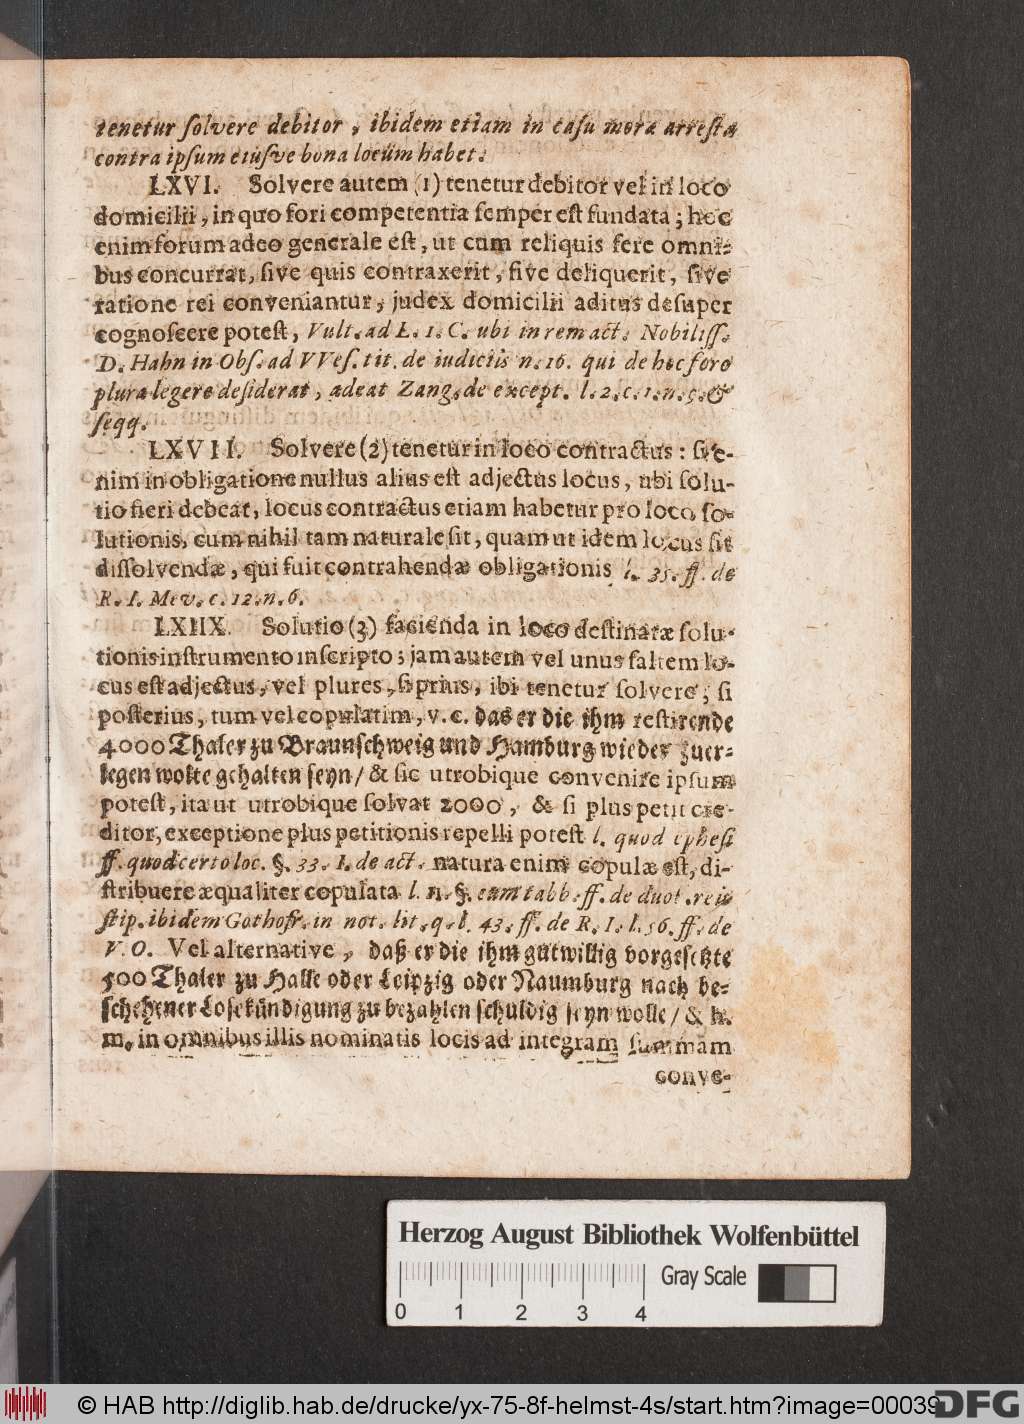 tenetur ſolvere debitor, ibidem etiam in caſu mora arreſta
contra ipſum eiuſve bona locüm habet.
LXVI. Solvere autem (1) tenetur debitor vel in loco
domicilii, in quo fori competentia ſemper eſt fundata; hoc
enim forum adeo generale eſt, ut cum reliquis fere omni-
bus concurrat, ſive quis contraxerit, ſive deliquerit, ſive
ratione rei conveniantur, judex domicilii aditus deſuper
cognoſcere poteſt, Vult. ad L. 1. C. ubi in rem act. Nobiliſſ.
D. Hahn in Obſ. ad VVeſ. tit. de iudiciis n. 16. qui de hoc foro
plura legere deſiderat, adeat Zang. de except. l. 2. c. 1. n. 5. &
ſeqq.
LXVII. Solvere (2) tenetur in loco contractus: ſi e-
nim in obligatione nullus alius eſt adjectus locus, ubi ſolu-
tio fieri debeat, locus contractus etiam habetur pro loco ſo-
lutionis, cum nihil tam naturale ſit, quam ut idem locus ſit
diſſolvendæ, qui fuit contrahendæ obligationis l. 35. ff. de
R. I. Mev. c. 12. n. 6.
LXIIX. Solutio (3) facienda in loco deſtinatæ ſolu-
tionis inſtrumento inſcripto; jam autem vel unus ſaltem lo-
cus eſt adjectus, vel plures, ſi prius, ibi tenetur ſolvere; ſi
poſterius, tum vel copulatim, v. c. das er die ihm reſtirende
4000 Thaler zu Braunſchweig und Hamburg wieder zuer-
legen wolte gehalten ſeyn/ & ſic utrobique convenire ipſum
poteſt, ita ut utrobique ſolvat 2000, & ſi plus petit cre-
ditor, exceptione plus petitionis repelli poteſt l. quod epheſi
ff. quod certo loc. §. 33. I. de act. natura enim copulæ eſt, di-
ſtribuere æqualiter copulata l. 11. §. cum tabb. ff. de duob. reis
ſtip. ibidem Gothofr. in not. lit. q. l. 43. ff. de R. I. l. 56. ff. de
V. O. Vel alternative, daß er die ihm gutwillig vorgeſetzte
500 Thaler zu Halle oder Leipzig oder Naumburg nach be-
ſchehener Loſekündigung zu bezahlen ſchuldig ſeyn wolle/ & h.
m. in omnibus illis nominatis locis ad integram ſummam
conve-
Herzog August Bibliothek Wolfenbüttel
Gray Scale
0 1 2 3 4
© HAB http://diglib.hab.de/drucke/yx-75-8f-helmst-4s/start.htm?image=00039
DFG